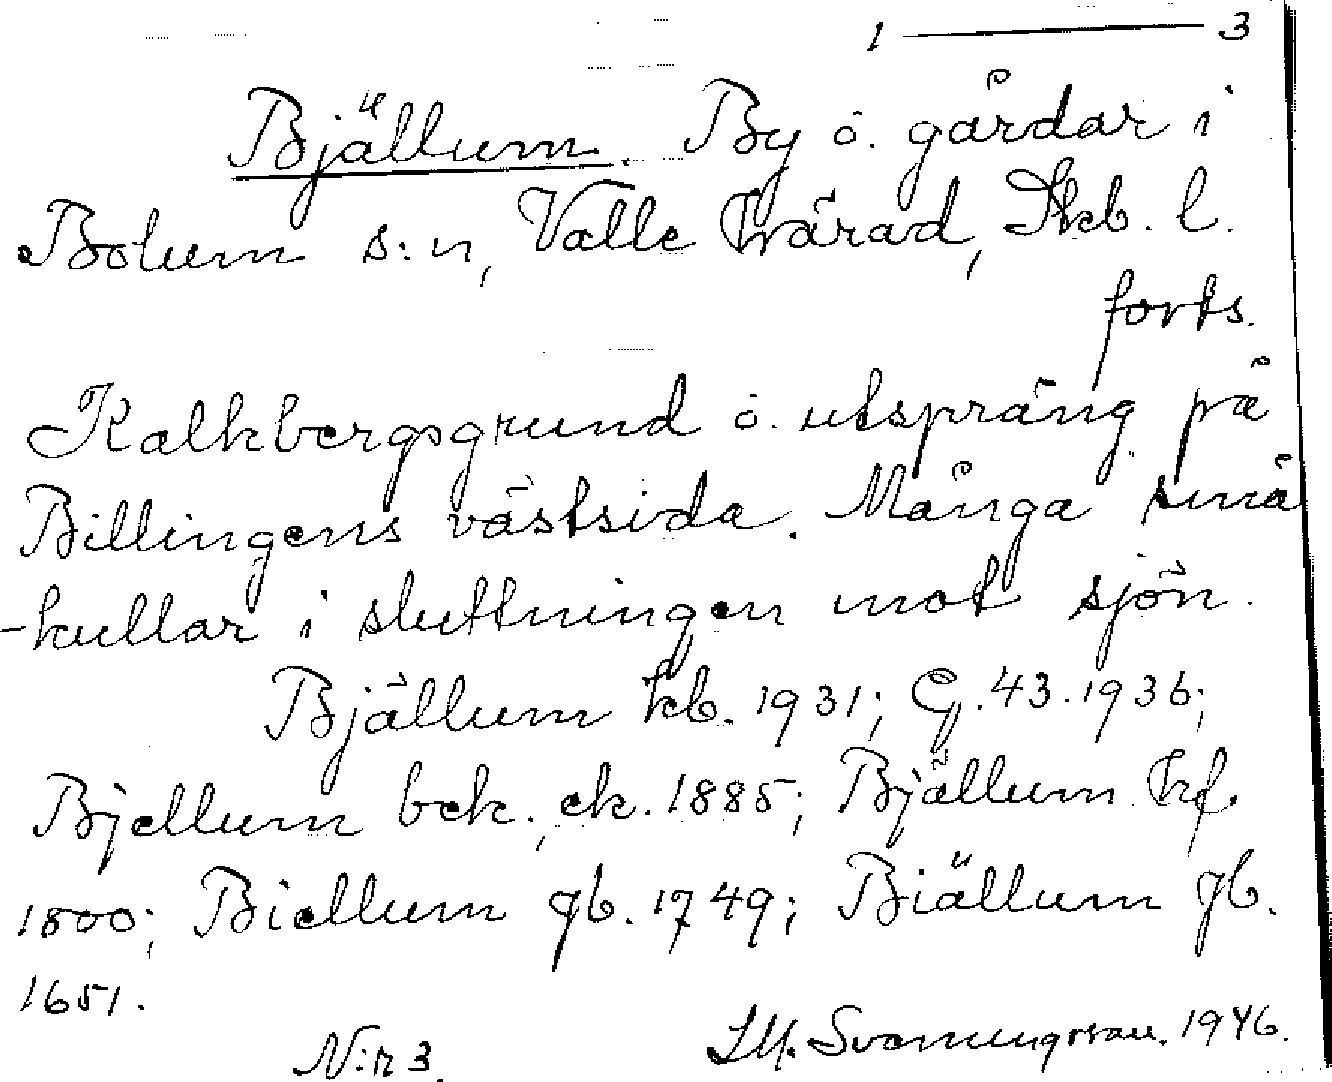 1 — 3
Bjällum. By o. gårdar i
Bolum s:n, Valle härad, Skb. l.
forts.
Kalkbergsgrund o. utsprång på
Billingens västsida. Många små
-kullar i sluttningen mot sjön.
Bjällum kb. 1931; G. 43. 1936;
Bjellum bek. ek. 1885; Bjällum kf
1800; Biellum jb. 1749; Biällum jb.
1651.
N:r 3. Svanungsson. 1946.